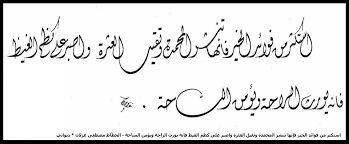 استكثر من فوائد الخير فإنها تنشر المحمدة وتقيل العثرة واصبر على كظم الغيظ
فانه يورث الراحة ويؤمن الساحة .
استكثر من فوائد الخير فإنها تنشر المحمدة وتقيل العثرة واصبر على كظم الغيظ فإنه يورث الراحة ويؤمن الساحة - الخطاط مصطفى غزلان * ديواني